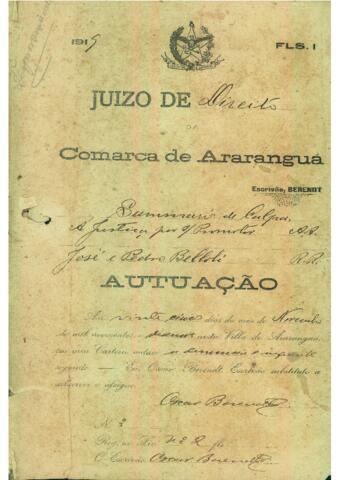 1919
FLS. 1
JUIZO DE Direito
DA
Comarca de Araranguá
Escrivão, BERENDT
Summario de Culpa
A Justiça por s/ Promotor A.A.
José e Pedro Belloli R.R.
AUTUAÇÃO
Aos vinte cinco dias do mez de Novembro
de mil novecentos e nesta Villa de Araranguá,
em meu Cartorio autuo a denuncia e
segundo — Eu Oscar Berendt Escrivão substituto o
escrevi e
Oscar Berendt
N. 2
Reg. no Liv. n. 2 fls
O Escrivão Oscar Berendt